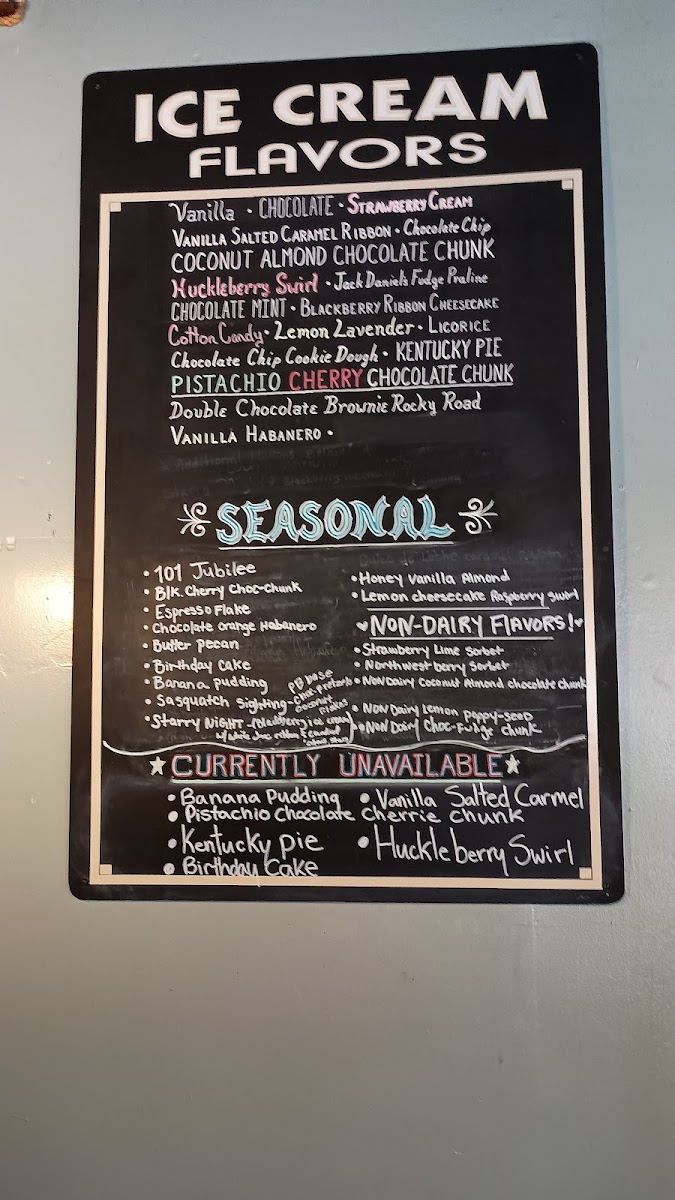 ICE CREAM
FLAVORS
Vanilla • CHOCOLATE • STRAWBERRY CREAM
VANILLA SALTED CARAMEL RIBBON • Chocolate Chip
COCONUT ALMOND CHOCOLATE CHUNK
Huckleberry Swirl • Jack Daniel's Fudge Praline
CHOCOLATE MINT • BLACKBERRY RIBBON CHEESECAKE
Cotton Candy • Lemon Lavender • LICORICE
Chocolate Chip Cookie Dough • KENTUCKY PIE
PISTACHIO CHERRY CHOCOLATE CHUNK
Double Chocolate Brownie Rocky Road
VANILLA HABANERO •
SEASONAL
• 101 Jubilee
• Blk. Cherry Choc-Chunk
• Espresso Flake
• Chocolate Orange Habanero
• Butter Pecan
• Birthday Cake
• Banana Pudding
• Sasquatch Sighting - PB base
choc-pretzels
coconut
flakes
• Starry NIGHT - (Blackberry ice cream)
w/white choc ribbon & candied
• Honey Vanilla Almond
• Lemon cheesecake Raspberry swirl
NON-DAIRY FLAVORS!
• Strawberry Lime Sorbet
• Northwest berry Sorbet
• NonDairy Coconut Almond chocolate chunk
• NON Dairy Lemon Poppy-seed
• NON Dairy Choc-Fudge chunk
CURRENTLY UNAVAILABLE
• Banana Pudding • Vanilla Salted Carmel
• Pistachio Chocolate Cherrie Chunk
• Kentucky pie • Huckleberry Swirl
• Birthday Cake